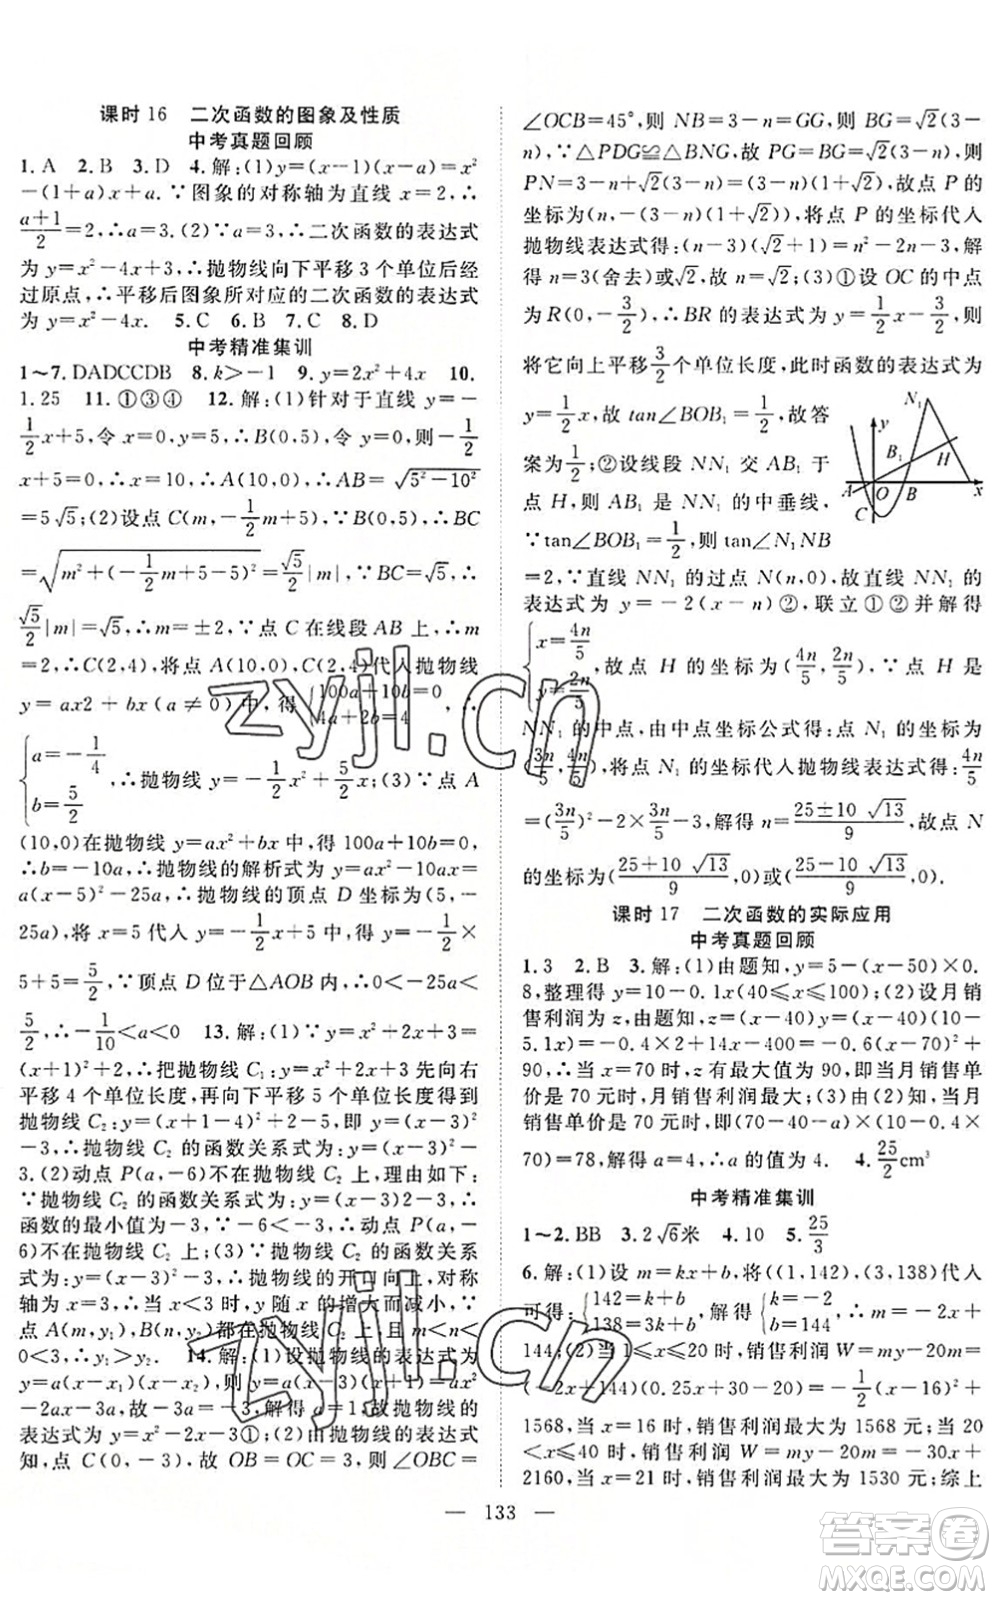 课时 16 二次函数的图象及性质
中考真题回顾
1. A 2. B 3. D 4. 解:(1)y=(x-1)(x-a)=x²
-(1+a)x+a.∵图象的对称轴为直线 x=2,∴
(a+1)/2=2,∴a=3.(2)∵a=3,∴二次函数的表达式
为 y=x²-4x+3,∴抛物线向下平移 3 个单位后经
过原点,∴平移后图象所对应的二次函数的表达式
为 y=x²-4x. 5. C 6. B 7. C 8. D
中考精准集训
1~7. DADCCDB 8. k>-1 9. y=2x²+4x 10.
1.25 11. ①③④ 12. 解:(1)针对于直线 y=-
1/2x+5,令 x=0,y=5,∴B(0,5),令 y=0,则-1/2
x+5=0,∴x=10,∴A(10,0),∴AB=√(5²-10²)
=5√5;(2)设点 C(m,-1/2m+5),∵B(0,5),∴BC
=√(m²+(-1/2m+5-5)²)=√5/2|m|,∵BC=√5,∴
√5/2|m|=√5,∴m=±2,∵点 C 在线段 AB 上,∴m
=2,∴C(2,4),将点 A(10,0),C(2,4)代人抛物线
y=ax2+bx(a≠0)中,得{100a+10b=0 4a+2b=4,∴
{a=-1/4 b=5/2,∴抛物线 y=-1/4x²+5/2x;(3)∵点 A
(10,0)在抛物线 y=ax²+bx 中,得 100a+10b=0,
∴b=-10a,∴抛物线的解析式为 y=ax²-10ax=
a(x-5)²-25a,∴抛物线的顶点 D 坐标为(5,-
25a),将 x=5 代人 y=-1/2x+5 中,得 y=-1/2×
5+5=5/2,∵顶点 D 位于△AOB 内,∴0<-25a<
5/2,∴-1/10<a<0 13. 解:(1)∵y=x²+2x+3=
(x+1)²+2,∴把抛物线 C₁:y=x²+2x+3 先向右
平移 4 个单位长度,再向下平移 5 个单位长度得到
抛物线 C₂:y=(x+1-4)²+2-5=(x-3)²
-3,∴抛物线 C₂ 的函数关系式为:y=(x-3)²
-3.(2)动点 P(a,-6)不在抛物线 C₂ 上,理由如下:
∵抛物线 C₂ 的函数关系式为:y=(x-3)²-3,∴
函数的最小值为-3,∵-6<-3,∴动点 P(a,
-6)不在抛物线 C₂ 上;(3)∵抛物线 C₂ 的函数关系
式为:y=(x-3)²-3,∴抛物线的开口向上,对称
轴为 x=3,∴当 x<3 时,y 随 x 的增大而减小,∵
点 A(m,y₁),B(n,y₂)都在抛物线 C₂ 上,且 m<n<
0<3,∴y₁>y₂. 14. 解:(1)设抛物线的表达式为
y=a(x-x₁)(x-x₂),则 y=a(x+1)(x-3)=ax²
-2ax-3a,故-3a=-3,解得 a=1,故抛物线的
表达式为 y=x²-2x-3①;(2)由抛物线的表达式
知,点 C(0,-3),故 OB=OC=3,则∠OBC=
∠OCB=45°,则 NB=3-n=GG,则 BG=√2(3-
n),∵△PDG≌△BNG,故 PG=BG=√2(3-n),则
PN=3-n+√2(3-n)=(√2+1)(3-n),故点 P 的
坐标为(n,-(3-n)(√2+1)),将点 P 的坐标代人
抛物线表达式得:(n-3)(√2+1)=n²-2n-3,解
得 n=3(舍去)或√2,故 n=√2;(3)①设 OC 的中点
为 R(0,-3/2),∴BR 的表达式为 y=1/2x-3/2,则
将它向上平移3/2个单位长度,此时函数的表达式为
y=1/2x,故 tan∠BOB₁=1/2,故答
案为1/2;②设线段 NN₁ 交 AB₁ 于
点 H,则 AB₁ 是 NN₁ 的中垂线,
∵tan∠BOB₁=1/2,则 tan∠N₁NB
=2,∵直线 NN₁ 的过点 N(n,0),故直线 NN₁ 的
表达式为 y=-2(x-n)②,联立①②并解得
{x=4n/5 y=2n/5,故点 H 的坐标为(4n/5,2n/5),∵点 H 是
NN₁ 的中点,由中点坐标公式得:点 N₁ 的坐标为
(3n/5,4n/5),将点 N₁ 的坐标代人抛物线表达式得:4n/5
=(3n/5)²-2×3n/5-3,解得 n=(25±10√13)/9,故点 N
的坐标为((25+10√13)/9,0)或((25-10√13)/9,0).
y
N₁
B₁
H
A
O
B
x
C
课时 17 二次函数的实际应用
中考真题回顾
1. 3 2. B 3. 解:(1)由题知,y=5-(x-50)×0.
8,整理得 y=10-0.1x(40≤x≤100);(2)设月销
售利润为 z,由题知,z=(x-40)y=(x-40)(10-
5.1x)=-0.4×2+14x-400=-0.6(x-70)²+
90,∴当 x=70 时,z 有最大值为 90,即当月销售单
价是 70 元时,月销售利润最大;(3)由(2)知,当月
销售单价是 70 元时,即(70-40-a)×(10-0.4×
70)=78,解得 a=4,∴a 的值为 4. 4. 25/2cm³
中考精准集训
1~2. BB 3. 2√6米 4. 10 5. 25/3
6. 解:(1)设 m=kx+b,将((1,142),(3,138)代人
可得:{142=k+b 138=3k+b,解得{k=-2 b=144,∴m=-2x+
144;(2)当 1≤x≤20 时,销售利润 W=my-20m=
(-2x+144)(0.25x+30-20)=-1/2(x-16)²+
1568,当 x=16 时,销售利润最大为 1568 元;当 20
<x≤30 时,销售利润 W=my-20m=-30x+
2160,当 x=21 时,销售利润最大为 1530 元;综上
— 133 —
zyjl.cn
zyjl.cn
答案圈
MXQE.COM